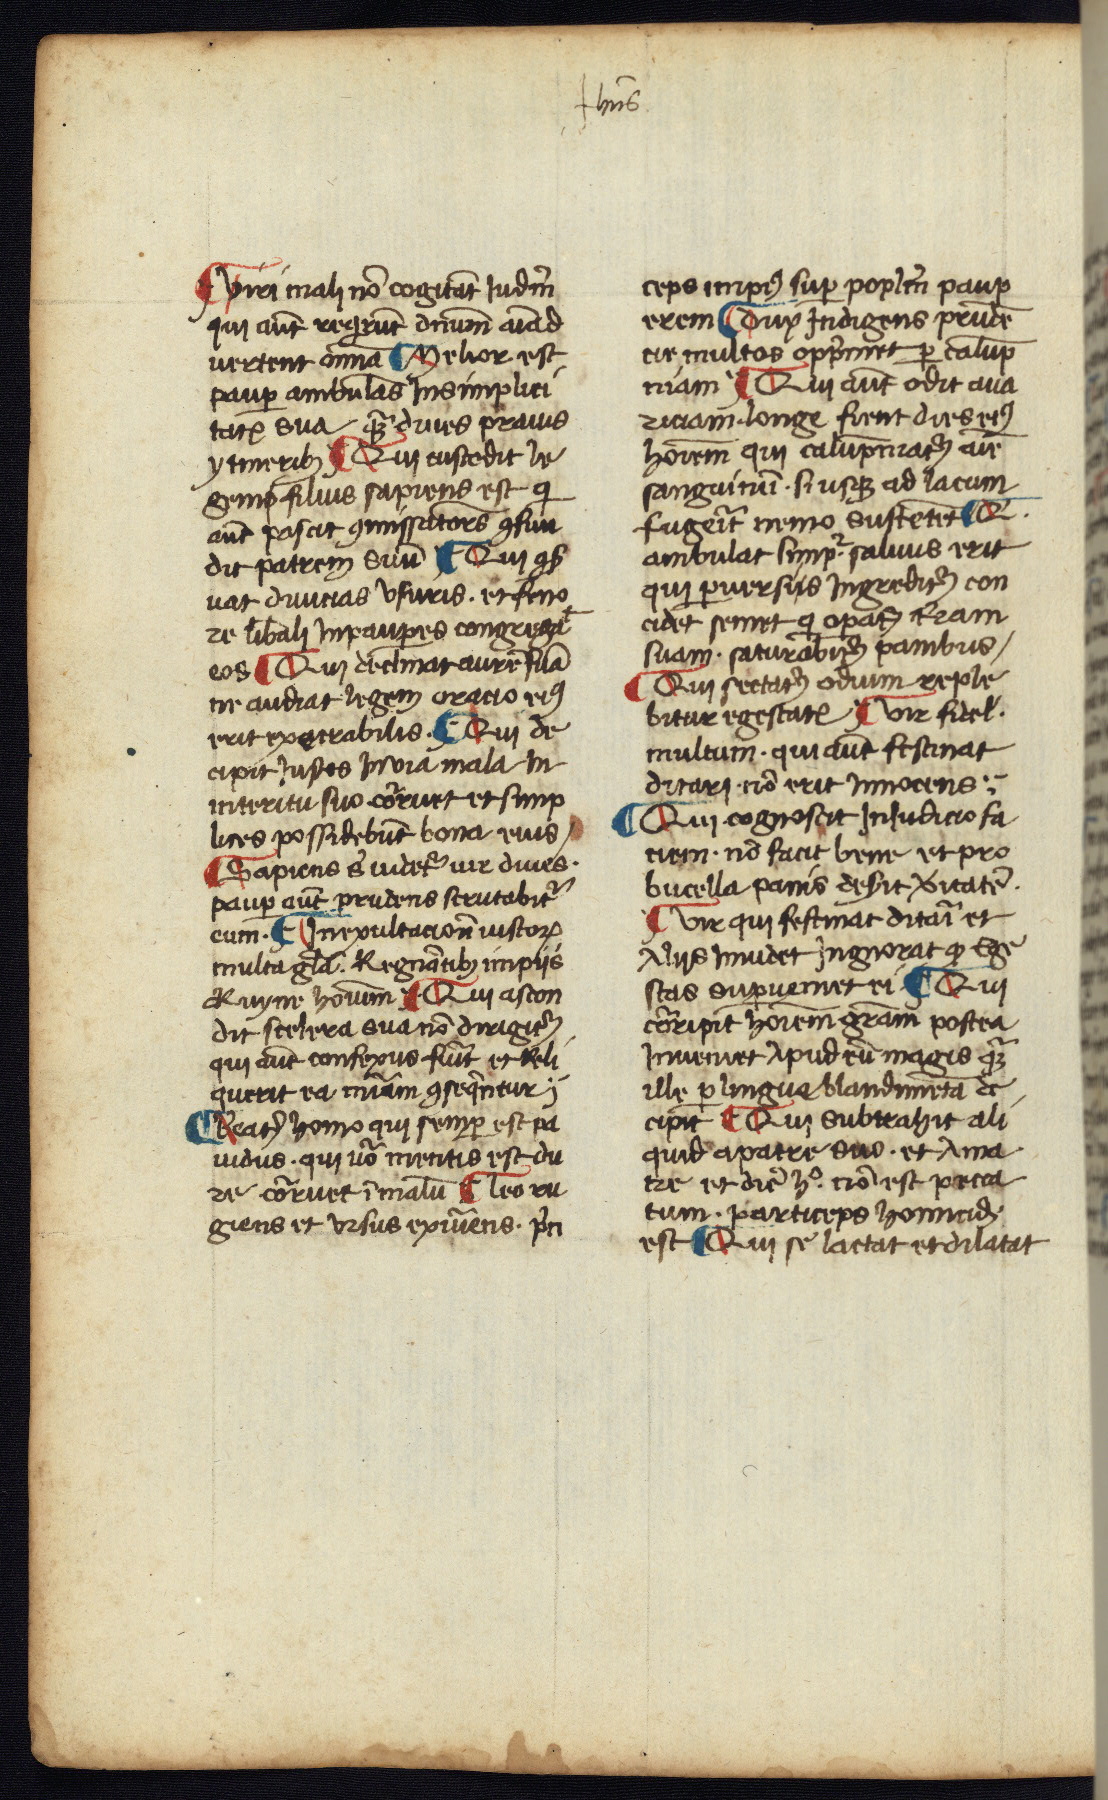 Jhūs
¶ Viri mali nō cogitāt Iudm̄
qui aūt reqrūt dnūm aīad
vertent oīma ¶ Melior est
paup ambulās Insimplici
tate sua qȝ diues prauis
ytineribȝ ¶ Qui custodit le
gem filius sapiens est qi
aūt pascit ꝯmissatores ꝯfun
dit patrem suū ¶ Qui ꝯser
uat diuicias vsuris. et feno
re libali Inpauꝑes congregat
eos ¶ Qui declinat aurē suā
ne audiat legem oracio eiꝰ
erit execrabilis. ¶ Qui de
cipit Iustos Inuia mala In
interitu suo corruet et simp
lices possidebūt bona eius /
¶ Sapiens s̄ uidetᷣ uir diues.
pauꝑ aūt prudens scrutabitᷣ
eum. ¶ Inexultacion̄ iustoꝝ
multa glā. Regnātibȝ impiis
Ruyne hoīum ¶ Qui ascon
dit scelera sua nō dirigitᷣ
qui aūt confexus fūit et Reli
querit ea mīam ꝯseqnetur ;
¶ Beatꝰ homo qui semꝑ est pa
uidus. qui uō mentis est du
re corruet ī malū ¶ Leo ru
giens et vrsus exuriens. pn
ceps impiꝰ suꝑ popl̄m pauꝑ
erem ¶ Dux Indigens prudē
cie multos oppmet ꝑ calūp
niam ¶ Qui aūt odit aua
riciam. longe fient dies eiꝰ
hoīem qui calūpniatᷣ aīe
sanguinui. si usqȝ ad lacum
fugerit nemo sustenet ¶ Q.
ambulat simpᷣ. saluus erit
qui ꝑuersiis Ingreditᷣ con
cidet semet qi opatᷣ tēram
suam. saturabitᷣ panibus /
¶ Qui sectatᷣ odium reple
bitur egestate ¶ Vir fidel.
multum. qui aūt festinat
ditari. nō erit Innocens :
¶ Qui cognoscit InIudicio fa
ciem. nō facit bene et pro
bucella panis desit ueritatē.
¶ Vir qui festinat ditari et
Aliis Inuidet Ingnorat qȝ Ege
stas suꝑueniet ei ¶ Qui
corripit hoīem grām postea
Inueniet Apud eū magis qȝ
ille ꝑ lingue blandimēta de
cipit ¶ Qui subtrahit ali
quid apatre suo. et Ama
tre et dicit h°. nō est pecca
tum. particeps homicide
est ¶ Qui se lactat et dilatat